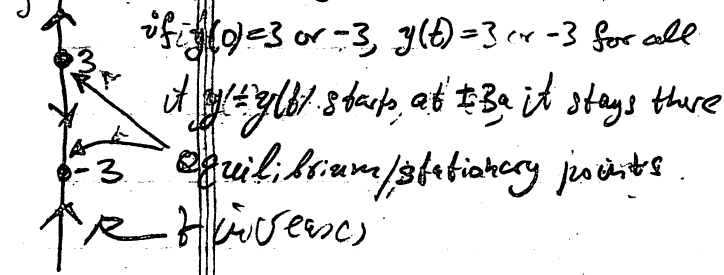 3 if y(0)=3 or -3, y(t)=3 or -3 for all
it y=y(t) starts at ±3, it stays there
-3 equilibrium/stationary points.
t increases